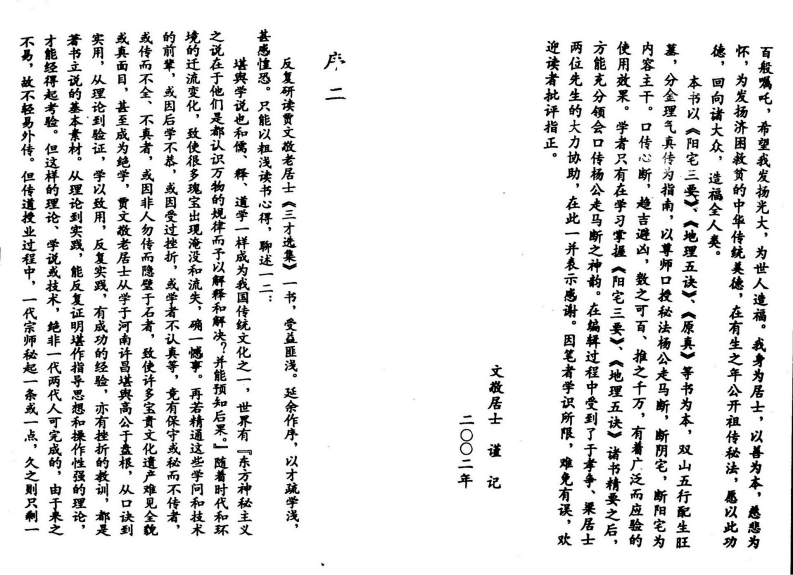 百般嘱吒，希望我发扬光大，为世人造福。我身为居士，以善为本，慈悲为
怀，为发扬济困救贫的中华传统美德，在有生之年公开祖传秘法，愿以此功
德，回向诸大众，造福全人类。
本书以《阳宅三要》、《地理五诀》、《原真》等书为本，双山五行配生旺
墓，分金理气真传为指南，以尊师口授秘法杨公走马断，断阴宅，断阳宅为
内容主干。口传心断，趋吉避凶，数之可百、推之千万，有着广泛而应验的
使用效果。学者只有在学习掌握《阳宅三要》、《地理五诀》诸书精要之后，
方能充分领会口传杨公走马断之神韵。在编辑过程中受到了于孝争、梁居士
两位先生的大力协助，在此一并表示感谢。因笔者学识所限，难免有误，欢
迎读者批评指正。
文敬居士 谨 记
二〇〇二年
序 二
反复研读贾文敬老居士《三才选集》一书，受益匪浅。延余作序，以才疏学浅，
甚感惶恐。只能以粗浅读书心得，聊述一二：
堪舆学说也和儒、释、道学一样成为我国传统文化之一，世界有『东方神秘主义
之说在于他们是都认识万物的规律而予以解释和解决？并能预知后果。』随着时代和环
境的迁流变化，致使很多瑰宝出现淹没和流失，确一憾事。再若精通这些学问和技术
的前辈，或因后学不恭，或因受过挫折，或学者不认真等，竟有保守或秘而不传者，
或传而不全、不真者，或因非人勿传而隐壁于石者，致使许多宝贵文化遗产难见全貌
或真面目，甚至成为绝学，贾文敬老居士从学于河南许昌堪舆高公于盘根，从口诀到
实用，从理论到验证，学以致用，反复实践，有成功的经验，亦有挫折的教训，都是
著书立说的基本素材。从理论到实践，能反复证明堪作指导思想和操作性强的理论，
才能经得起考验。但这样的理论、学说或技术，绝非一代两代人可完成的，由于来之
不易，故不轻易外传。但传道授业过程中，一代宗师秘起一条或一点，久之则只剩一